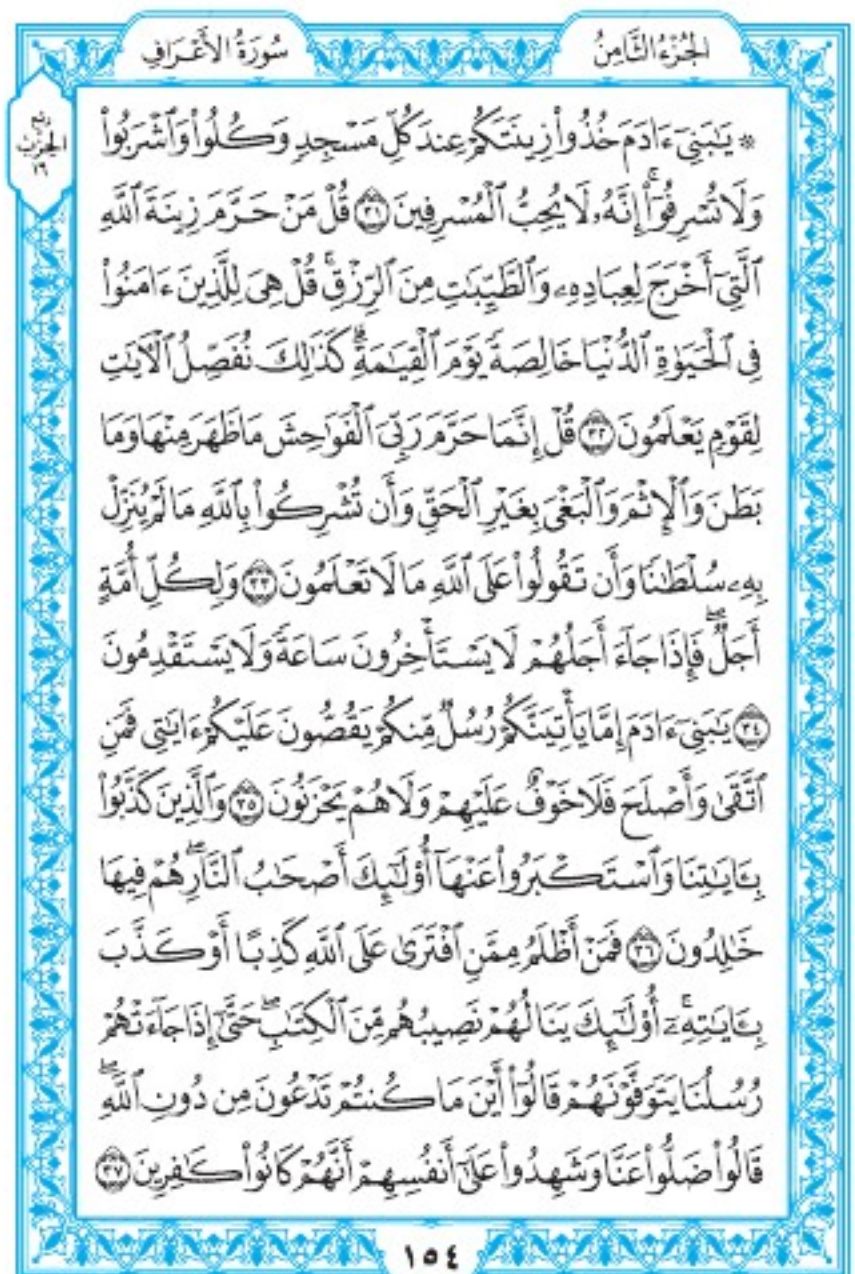 الجُزْءُ الثَّامِنُ
سُورَةُ الأَعْرَافِ
ربع
الحزب
١٦
۞ يَٰبَنِىٓ ءَادَمَ خُذُوا۟ زِينَتَكُمْ عِندَ كُلِّ مَسْجِدٍ وَكُلُوا۟ وَٱشْرَبُوا۟
وَلَا تُسْرِفُوٓا۟ ۚ إِنَّهُۥ لَا يُحِبُّ ٱلْمُسْرِفِينَ ٣١ قُلْ مَنْ حَرَّمَ زِينَةَ ٱللَّهِ
ٱلَّتِىٓ أَخْرَجَ لِعِبَادِهِۦ وَٱلطَّيِّبَٰتِ مِنَ ٱلرِّزْقِ ۚ قُلْ هِىَ لِلَّذِينَ ءَامَنُوا۟
فِى ٱلْحَيَوٰةِ ٱلدُّنْيَا خَالِصَةً يَوْمَ ٱلْقِيَٰمَةِ ۗ كَذَٰلِكَ نُفَصِّلُ ٱلْءَايَٰتِ
لِقَوْمٍ يَعْلَمُونَ ٣٢ قُلْ إِنَّمَا حَرَّمَ رَبِّىَ ٱلْفَوَٰحِشَ مَا ظَهَرَ مِنْهَا وَمَا
بَطَنَ وَٱلْإِثْمَ وَٱلْبَغْىَ بِغَيْرِ ٱلْحَقِّ وَأَن تُشْرِكُوا۟ بِٱللَّهِ مَا لَمْ يُنَزِّلْ
بِهِۦ سُلْطَٰنًا وَأَن تَقُولُوا۟ عَلَى ٱللَّهِ مَا لَا تَعْلَمُونَ ٣٣ وَلِكُلِّ أُمَّةٍ
أَجَلٌ ۖ فَإِذَا جَآءَ أَجَلُهُمْ لَا يَسْتَأْخِرُونَ سَاعَةً ۖ وَلَا يَسْتَقْدِمُونَ
٣٤ يَٰبَنِىٓ ءَادَمَ إِمَّا يَأْتِيَنَّكُمْ رُسُلٌ مِّنكُمْ يَقُصُّونَ عَلَيْكُمْ ءَايَٰتِى فَمَنِ
ٱتَّقَىٰ وَأَصْلَحَ فَلَا خَوْفٌ عَلَيْهِمْ وَلَا هُمْ يَحْزَنُونَ ٣٥ وَٱلَّذِينَ كَذَّبُوا۟
بِـَٔايَٰتِنَا وَٱسْتَكْبَرُوا۟ عَنْهَآ أُو۟لَٰٓئِكَ أَصْحَٰبُ ٱلنَّارِ ۖ هُمْ فِيهَا
خَٰلِدُونَ ٣٦ فَمَنْ أَظْلَمُ مِمَّنِ ٱفْتَرَىٰ عَلَى ٱللَّهِ كَذِبًا أَوْ كَذَّبَ
بِـَٔايَٰتِهِۦٓ ۚ أُو۟لَٰٓئِكَ يَنَالُهُمْ نَصِيبُهُم مِّنَ ٱلْكِتَٰبِ ۖ حَتَّىٰٓ إِذَا جَآءَتْهُمْ
رُسُلُنَا يَتَوَفَّوْنَهُمْ قَالُوٓا۟ أَيْنَ مَا كُنتُمْ تَدْعُونَ مِن دُونِ ٱللَّهِ ۖ
قَالُوا۟ ضَلُّوا۟ عَنَّا وَشَهِدُوا۟ عَلَىٰٓ أَنفُسِهِمْ أَنَّهُمْ كَانُوا۟ كَٰفِرِينَ ٣٧
١٥٤